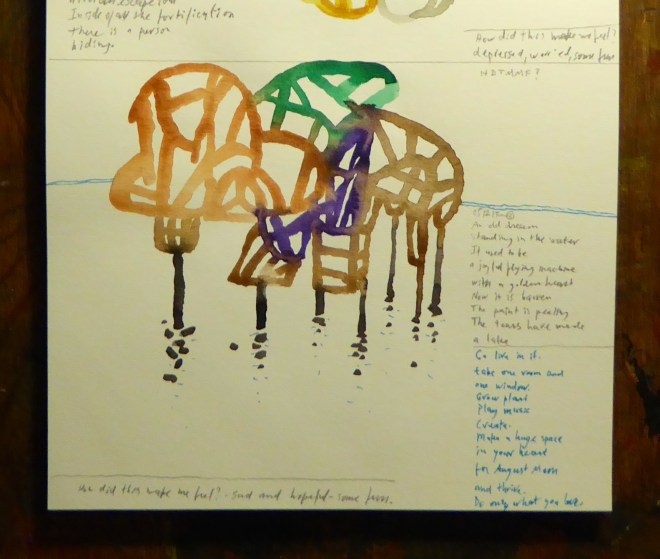 Inside of all the fortification
there is a person
hiding.
How did this make me feel?
depressed, worried, some
NDTMMF?
An old dream
standing in the water
It used to be
a joyful flying machine
with a golden heart
Now it is barren
The paint is peeling
The tears have made
a lake
Go live in it.
take one room and
one window.
Grow plant
Play music
Create.
Make a huge space
in your heart
for August Moon
and thrive.
Do only what you love.
How did this make me feel? - sad and hopeful - some